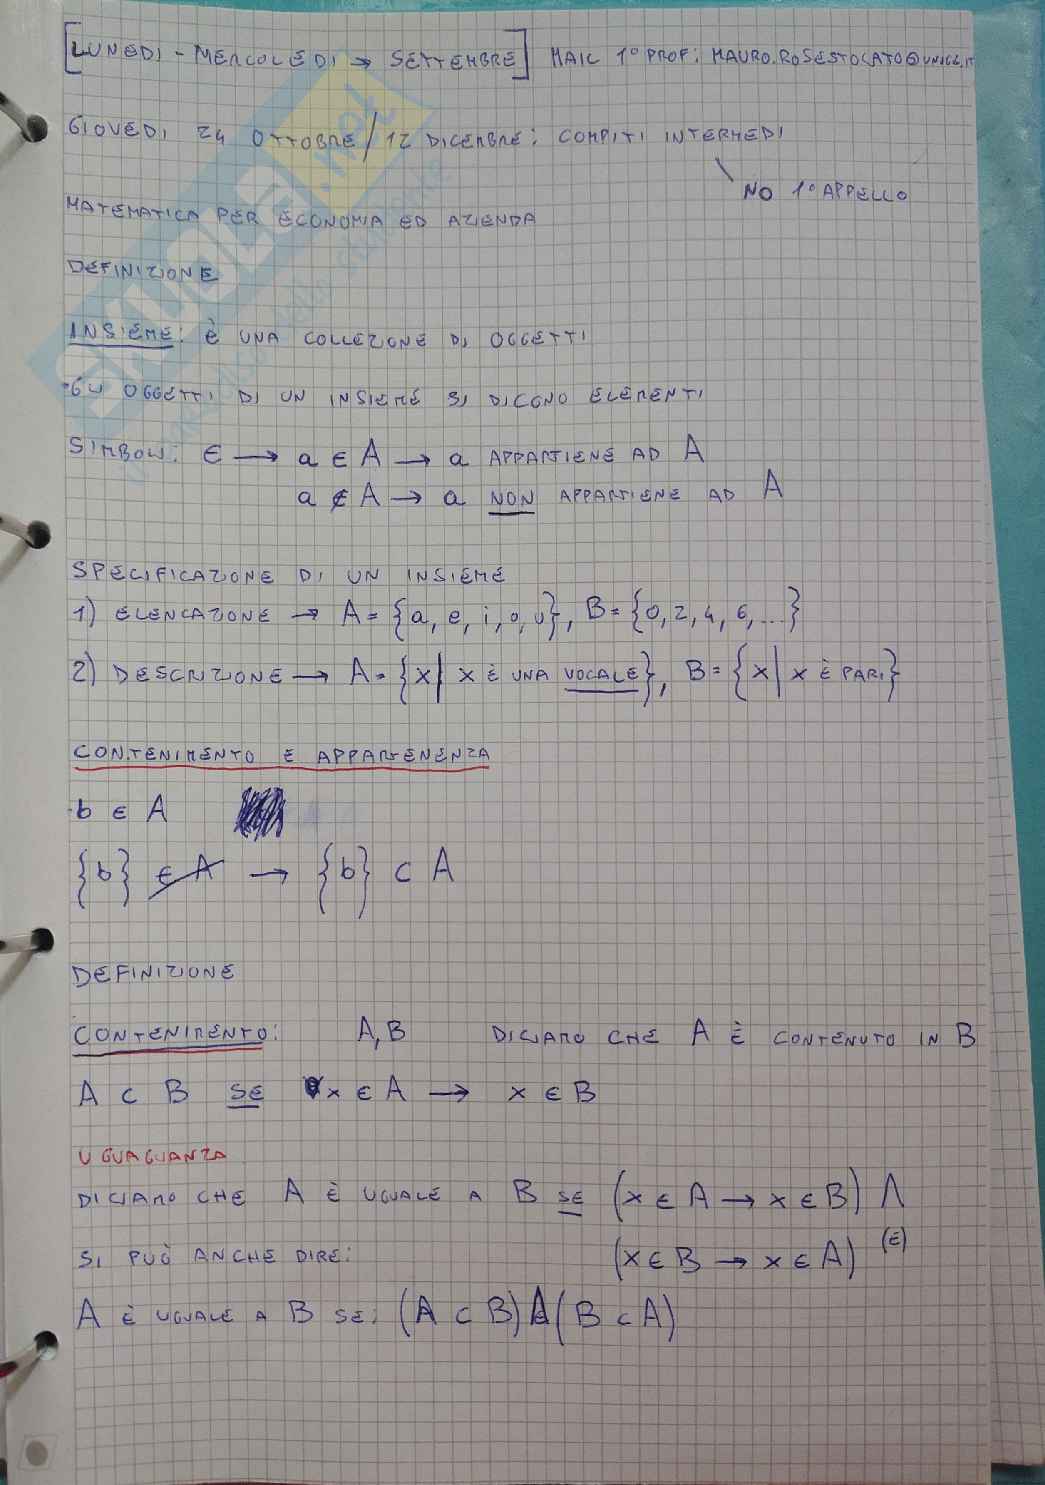 [LUNEDI - MERCOLEDI → SETTEMBRE] MAIL 1° PROF: MAURO.ROSESTOLATO@UNIGE.IT
GIOVEDI 24 OTTOBRE / 12 DICEMBRE: COMPITI INTERMEDI
NO 1° APPELLO
MATEMATICA PER ECONOMIA ED AZIENDA
DEFINIZIONE
INSIEME: È UNA COLLEZIONE DI OGGETTI
·GLI OGGETTI DI UN INSIEME SI DICONO ELEMENTI
SIMBOLI: ∈ → a ∈ A → a APPARTIENE AD A
a ∉ A → a NON APPARTIENE AD A
SPECIFICAZIONE DI UN INSIEME
1) ELENCAZIONE → A = {a, e, i, o, u}, B = {0, 2, 4, 6, ...}
2) DESCRIZIONE → A = {x | x È UNA VOCALE}, B = {x | x È PARI}
CONTENIMENTO E APPARTENENZA
·b ∈ A
{b} ∈ A → {b} ⊂ A
DEFINIZIONE
CONTENIMENTO: A, B DICIAMO CHE A È CONTENUTO IN B
A ⊂ B SE ∀x ∈ A → x ∈ B
UGUAGLIANZA
DICIAMO CHE A È UGUALE A B SE (x ∈ A → x ∈ B) ∧
SI PUÒ ANCHE DIRE: (x ∈ B → x ∈ A) (E)
A È UGUALE A B SE: (A ⊂ B) ∧ (B ⊂ A)
SKUOLA.net